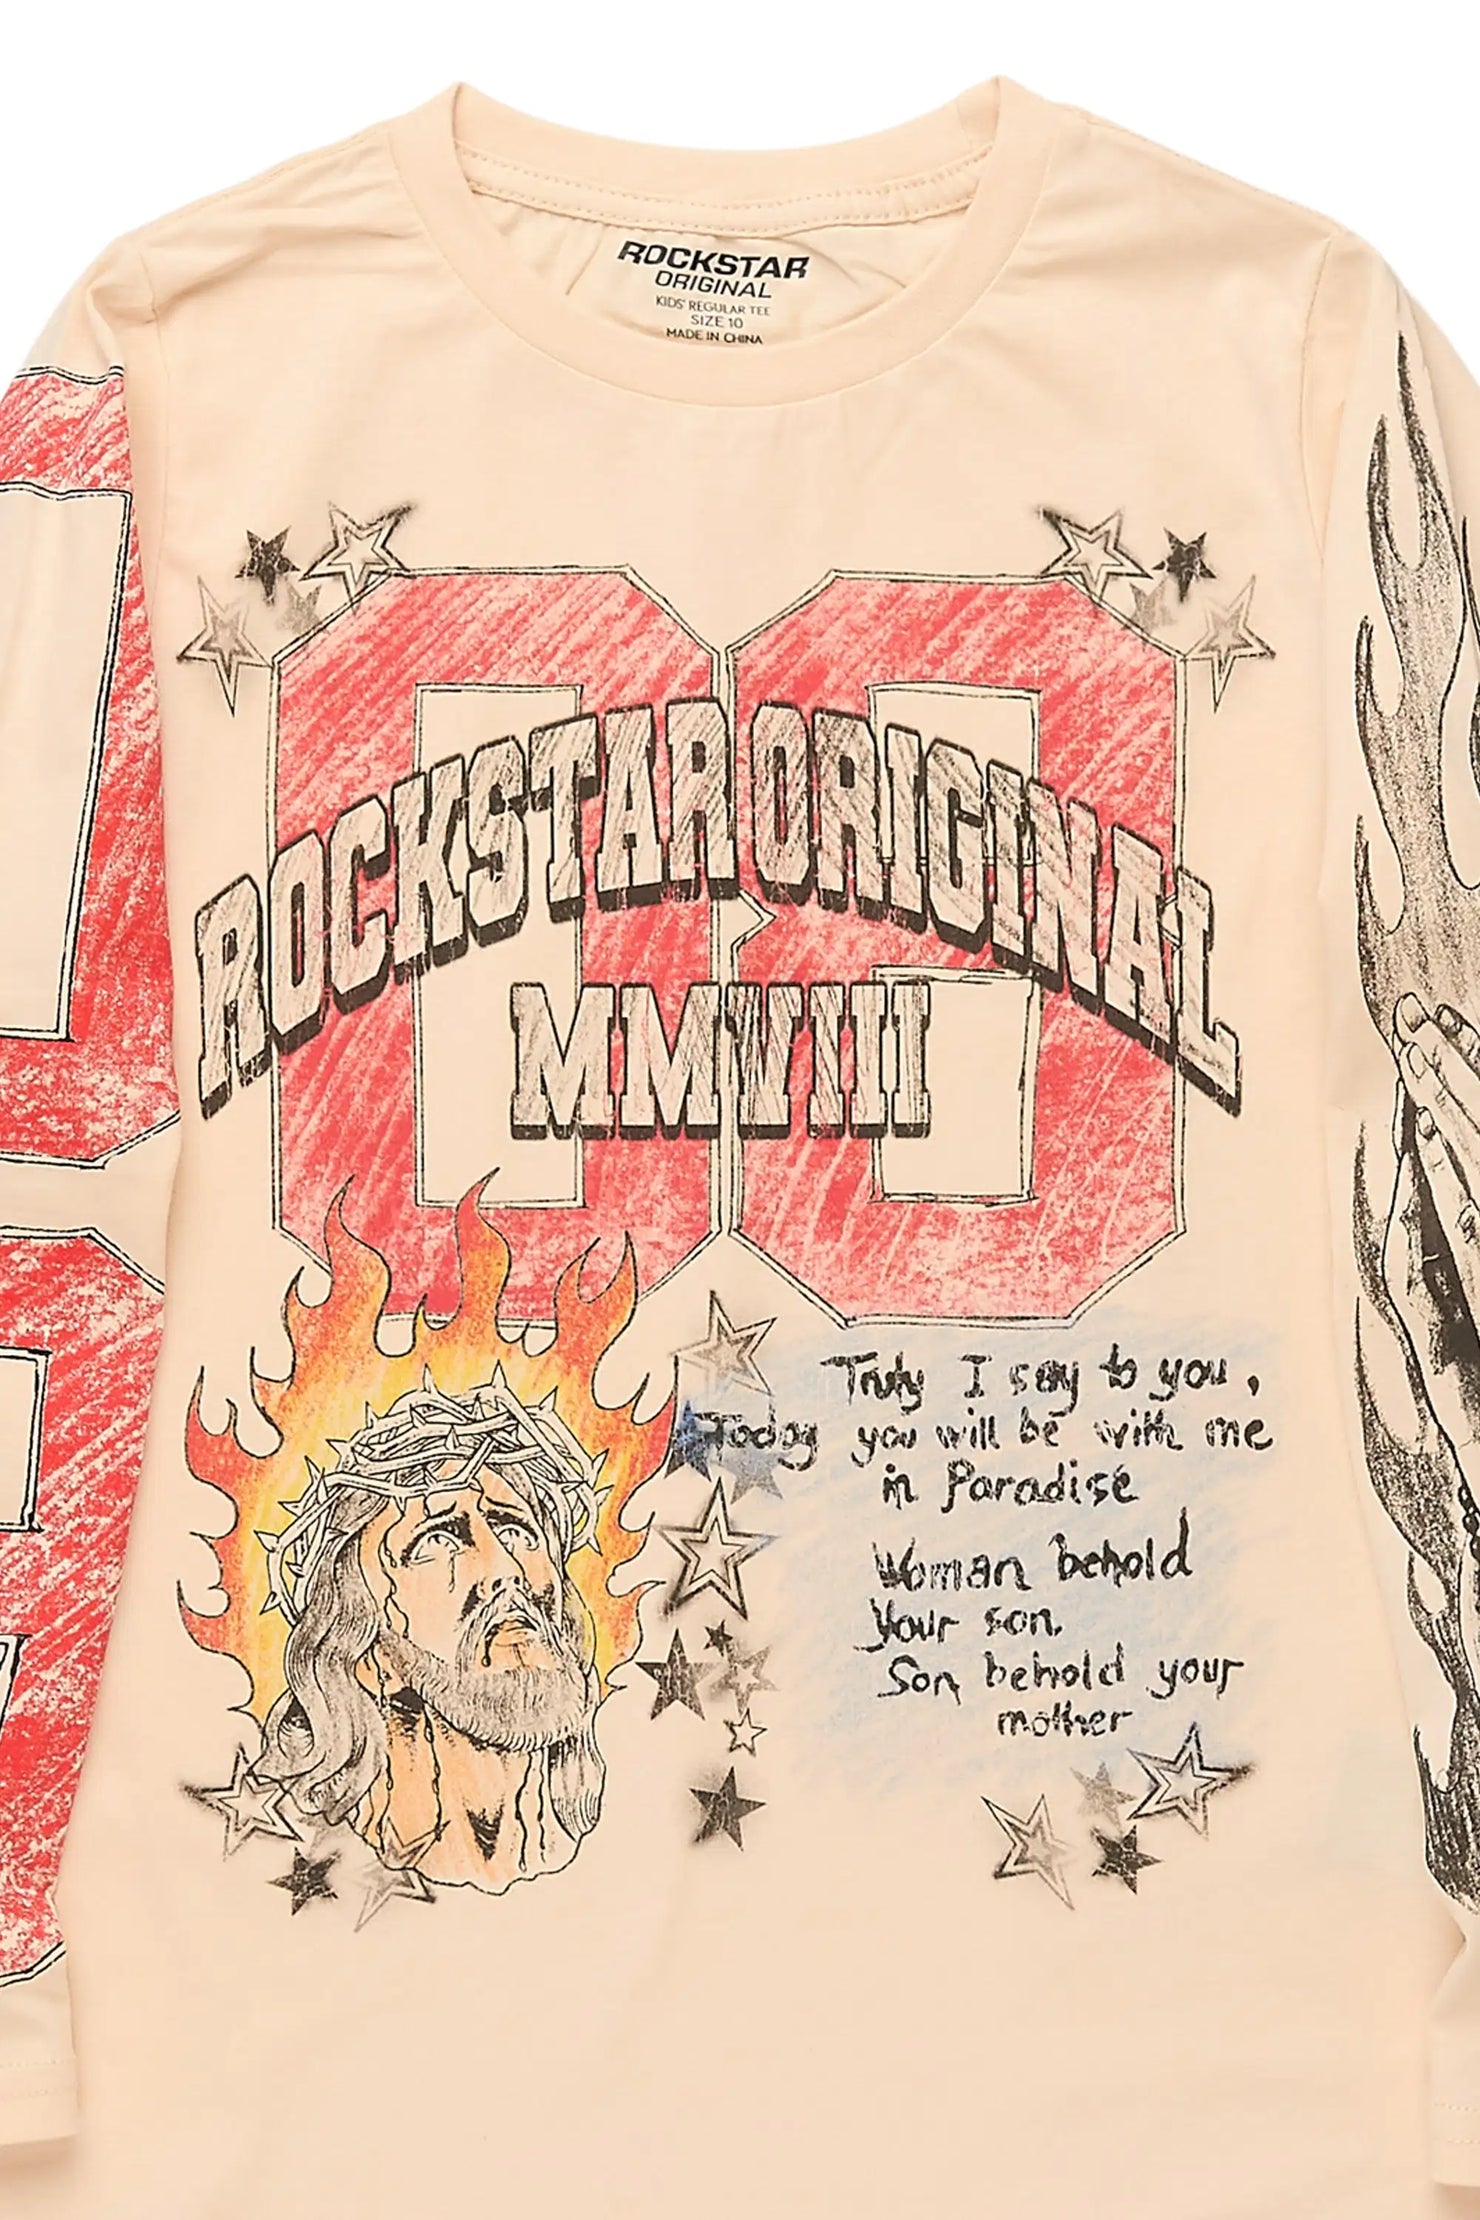 ROCKSTAR
ORIGINAL
KIDS' REGULAR TEE
SIZE 10
MADE IN CHINA
ROCKSTAR ORIGINAL
MMVIII
Truly I say to you,
Today you will be with me
in Paradise
Woman behold
your son.
Son behold your
mother